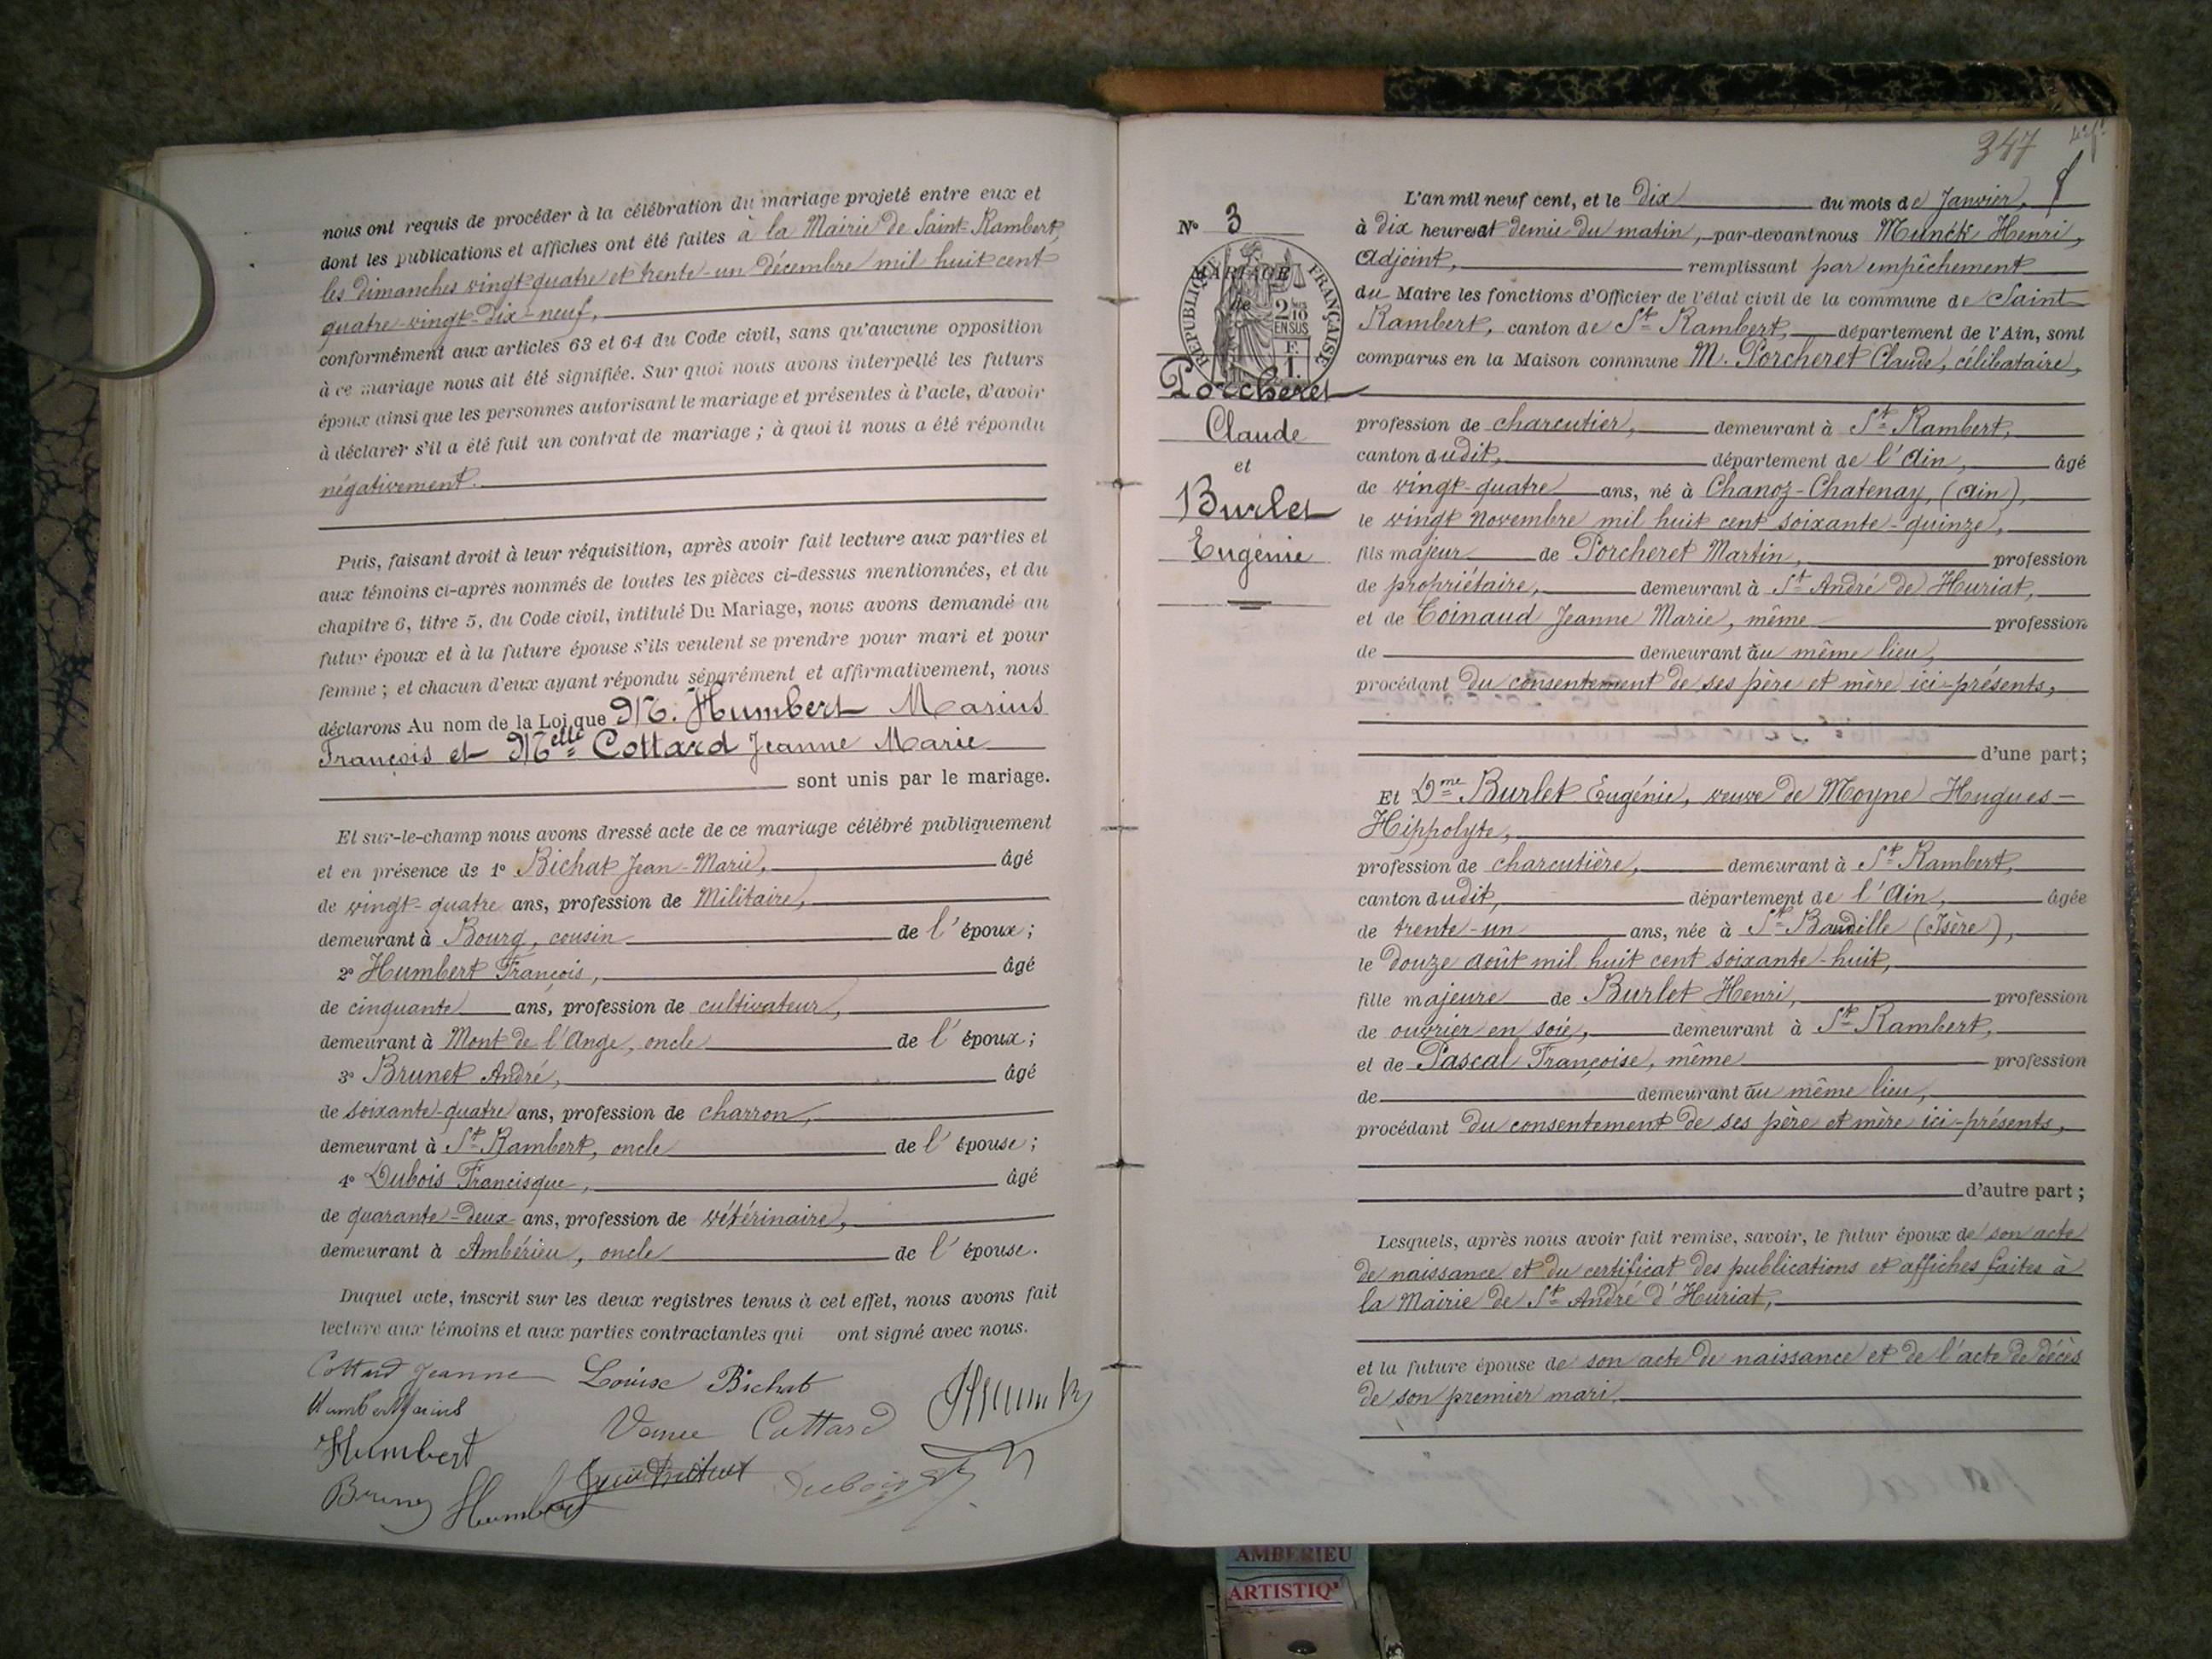 nous ont requis de procéder à la célébration du mariage projeté entre eux et
dont les publications et affiches ont été faites à la Mairie de Saint-Rambert,
les dimanches vingt-quatre et trente-un décembre mil huit cent
quatre-vingt-dix-neuf,
conformément aux articles 63 et 64 du Code civil, sans qu'aucune opposition
à ce mariage nous ait été signifiée. Sur quoi nous avons interpellé les futurs
époux ainsi que les personnes autorisant le mariage et présentes à l'acte, d'avoir
à déclarer s'il a été fait un contrat de mariage ; à quoi il nous a été répondu
négativement.
Puis, faisant droit à leur réquisition, après avoir fait lecture aux parties et
aux témoins ci-après nommés de toutes les pièces ci-dessus mentionnées, et du
chapitre 6, titre 5, du Code civil, intitulé Du Mariage, nous avons demandé au
futur époux et à la future épouse s'ils veulent se prendre pour mari et pour
femme ; et chacun d'eux ayant répondu séparément et affirmativement, nous
déclarons Au nom de la Loi que M. Humbert Marius
François et Melle Cottard Jeanne Marie
sont unis par le mariage.
Et sur-le-champ nous avons dressé acte de ce mariage célébré publiquement
et en présence de 1° Bichat Jean-Marie, âgé
de vingt-quatre ans, profession de Militaire,
demeurant à Bourg, cousin de l'époux ;
2° Humbert François, âgé
de cinquante ans, profession de cultivateur,
demeurant à Mont de l'Ange, oncle de l'époux ;
3° Brunet André, âgé
de soixante-quatre ans, profession de charron,
demeurant à St Rambert, oncle de l'épouse ;
4° Dubois Francisque, âgé
de quarante-deux ans, profession de vétérinaire,
demeurant à Ambérieu, oncle de l'épouse.
Duquel acte, inscrit sur les deux registres tenus à cet effet, nous avons fait
lecture aux témoins et aux parties contractantes qui ont signé avec nous.
Cottard Jeanne Louise Bichat
Humbert Marius
Cottard
Humbert
Humbert Dubois
347
N° 3
RÉPUBLIQUE FRANÇAISE
MARIAGE
de
2/10
EN SUS
Porcheret
Claude
et
Burlet
Eugénie
L'an mil neuf cent, et le dix du mois de Janvier,
à dix heures et demie du matin, par-devant nous Munck Henri,
Adjoint, remplissant par empêchement
du Maire les fonctions d'Officier de l'état civil de la commune de Saint
Rambert, canton de St Rambert, département de l'Ain, sont
comparus en la Maison commune M. Porcheret Claude, célibataire,
profession de charcutier, demeurant à St Rambert,
canton dudit, département de l'Ain, âgé
de vingt-quatre ans, né à Chanoz-Chatenay, (Ain),
le vingt Novembre mil huit cent soixante-quinze,
fils majeur de Porcheret Martin, profession
de propriétaire, demeurant à St André de Huriat,
et de Coinaud Jeanne Marie, même profession
de demeurant au même lieu,
procédant du consentement de ses père et mère ici-présents,
d'une part ;
Et Dme Burlet Eugénie, veuve de Moyne Hugues-
Hippolyte,
profession de charcutière, demeurant à St Rambert,
canton dudit, département de l'Ain, âgée
de trente-un ans, née à St Baudille (Isère),
le douze août mil huit cent soixante-huit,
fille majeure de Burlet Henri, profession
de ouvrier en soie, demeurant à St Rambert,
et de Pascal Françoise, même profession
de demeurant au même lieu,
procédant du consentement de ses père et mère ici-présents,
d'autre part ;
Lesquels, après nous avoir fait remise, savoir, le futur époux de son acte
de naissance et du certificat des publications et affiches faites à
la Mairie de St André d'Huriat,
et la future épouse de son acte de naissance et de l'acte de décès
de son premier mari,
AMBERIEU
ARTISTIQ'